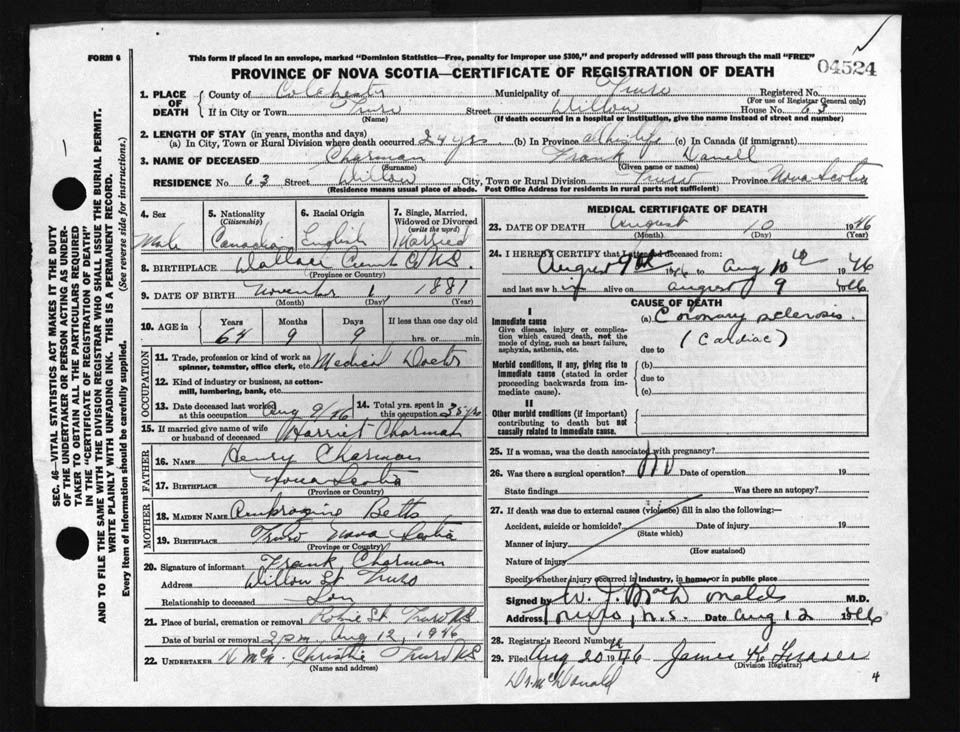 FORM 6
This form if placed in an envelope, marked "Dominion Statistics—Free, penalty for improper use $300," and properly addressed will pass through the mail "FREE"
PROVINCE OF NOVA SCOTIA—CERTIFICATE OF REGISTRATION OF DEATH
04524
1. PLACE OF DEATH
County of Colchester Municipality of Truro Registered No.
(For use of Registrar General only)
If in City or Town Truro Street Willow House No. 63
(Name) (If death occurred in a hospital or institution, give the name instead of street and number)
2. LENGTH OF STAY (in years, months and days)
(a) In City, Town or Rural Division where death occurred 24 yrs (b) In Province all his life (c) In Canada (if immigrant)
3. NAME OF DECEASED Charman Frank
(Surname) (Given name or names)
RESIDENCE No 63 Street Willow City, Town or Rural Division Truro Province Nova Scotia
(Residence means usual place of abode. Post Office Address for residents in rural parts not sufficient)
4. Sex Male
5. Nationality (Citizenship) Canadian
6. Racial Origin English
7. Single, Married, Widowed or Divorced (write the word) Married
8. BIRTHPLACE Wallace Cumb Co N.S.
(Province or Country)
9. DATE OF BIRTH November 1 1881
(Month) (Day) (Year)
10. AGE in Years Months Days If less than one day old
64 9 9 hrs. or min.
OCCUPATION
11. Trade, profession or kind of work as spinner, teamster, office clerk, etc. Medical Doctor
12. Kind of industry or business, as cotton-mill, lumbering, bank, etc.
13. Date deceased last worked at this occupation Aug 9/46
14. Total yrs. spent in this occupation 35 yrs
15. If married give name of wife or husband of deceased Harriet Charman
FATHER
16. NAME Henry Charman
17. BIRTHPLACE Nova Scotia
(Province or Country)
MOTHER
18. MAIDEN NAME Betts
19. BIRTHPLACE Truro Nova Scotia
(Province or Country)
20. Signature of informant Frank Charman
Address Willow St Truro
Relationship to deceased Son
21. Place of burial, cremation or removal Robie St Truro NS
Date of burial or removal 2 pm Aug 12, 1946
22. UNDERTAKER Christie Truro NS
(Name and address)
MEDICAL CERTIFICATE OF DEATH
23. DATE OF DEATH August 10 1946
(Month) (Day) (Year)
24. I HEREBY CERTIFY that I attended deceased from:
August 9th 1946 to Aug 10th 1946
and last saw him alive on August 9 1946
CAUSE OF DEATH
I
Immediate cause
Give disease, injury or complication which caused death, not the mode of dying, such as heart failure, asphyxia, asthenia, etc.
(a) Coronary sclerosis.
(Cardiac)
due to
Morbid conditions, if any, giving rise to immediate cause (stated in order proceeding backwards from immediate cause).
(b)
due to
(c)
II
Other morbid conditions (if important) contributing to death but not causally related to immediate cause.
25. If a woman, was the death associated with pregnancy?
26. Was there a surgical operation? No Date of operation 19
State findings Was there an autopsy?
27. If death was due to external causes (violence) fill in also the following:—
Accident, suicide or homicide? Date of injury 19
(State which)
Manner of injury
(How sustained)
Nature of injury
Specify whether injury occurred in industry, in home, or in public place
Signed by W. J. MacDonald M.D.
Address Truro, N.S. Date Aug 12 1946
28. Registrar's Record Number
29. Filed Aug 20th 1946 James K
(Division Registrar)
Dr. McDonald
4
SEC. 46—VITAL STATISTICS ACT MAKES IT THE DUTY
OF THE UNDERTAKER OR PERSON ACTING AS UNDER-
TAKER TO OBTAIN ALL THE PARTICULARS REQUIRED
IN THE "CERTIFICATE OF REGISTRATION OF DEATH"
AND TO FILE THE SAME WITH THE DIVISION REGISTRAR WHO SHALL ISSUE THE BURIAL PERMIT.
WRITE PLAINLY WITH UNFADING INK. THIS IS A PERMANENT RECORD.
Every item of information should be carefully supplied. (See reverse side for instructions.)